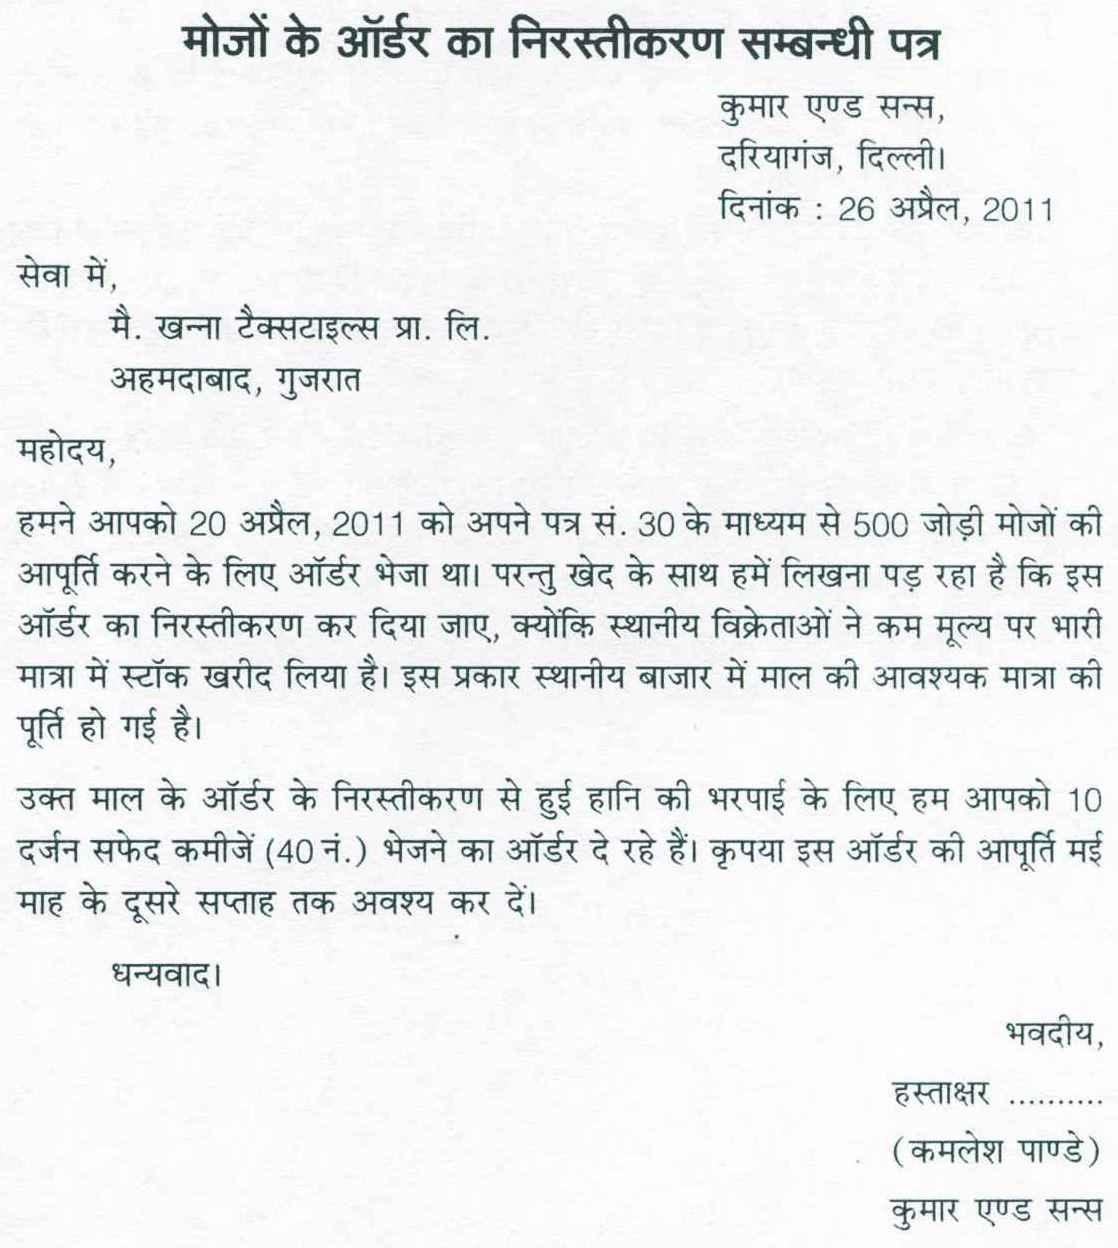 मोजों के ऑर्डर का निरस्तीकरण सम्बन्धी पत्र
कुमार एण्ड सन्स,
दरियागंज, दिल्ली।
दिनांक : 26 अप्रैल, 2011
सेवा में,
मै. खन्ना टैक्सटाइल्स प्रा. लि.
अहमदाबाद, गुजरात
महोदय,
हमने आपको 20 अप्रैल, 2011 को अपने पत्र सं. 30 के माध्यम से 500 जोड़ी मोजों की
आपूर्ति करने के लिए ऑर्डर भेजा था। परन्तु खेद के साथ हमें लिखना पड़ रहा है कि इस
ऑर्डर का निरस्तीकरण कर दिया जाए, क्योंकि स्थानीय विक्रेताओं ने कम मूल्य पर भारी
मात्रा में स्टॉक खरीद लिया है। इस प्रकार स्थानीय बाजार में माल की आवश्यक मात्रा की
पूर्ति हो गई है।
उक्त माल के ऑर्डर के निरस्तीकरण से हुई हानि की भरपाई के लिए हम आपको 10
दर्जन सफेद कमीजें (40 नं.) भेजने का ऑर्डर दे रहे हैं। कृपया इस ऑर्डर की आपूर्ति मई
माह के दूसरे सप्ताह तक अवश्य कर दें।
धन्यवाद।
भवदीय,
हस्ताक्षर ..........
(कमलेश पाण्डे)
कुमार एण्ड सन्स